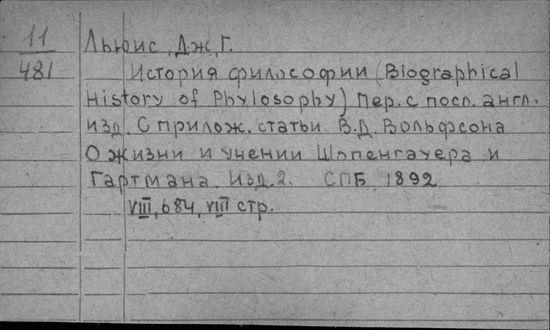 11
481
Льюис, Дж. Г.
История философии (Biographical
History of Phylosophy) Пер. с посл. англ.
изд. С прилож. статьи В.Д. Вольфсона
О жизни и учении Шопенгауера и
Гартмана. Изд. 2. СПБ, 1892
VIII, 684, VIII стр.